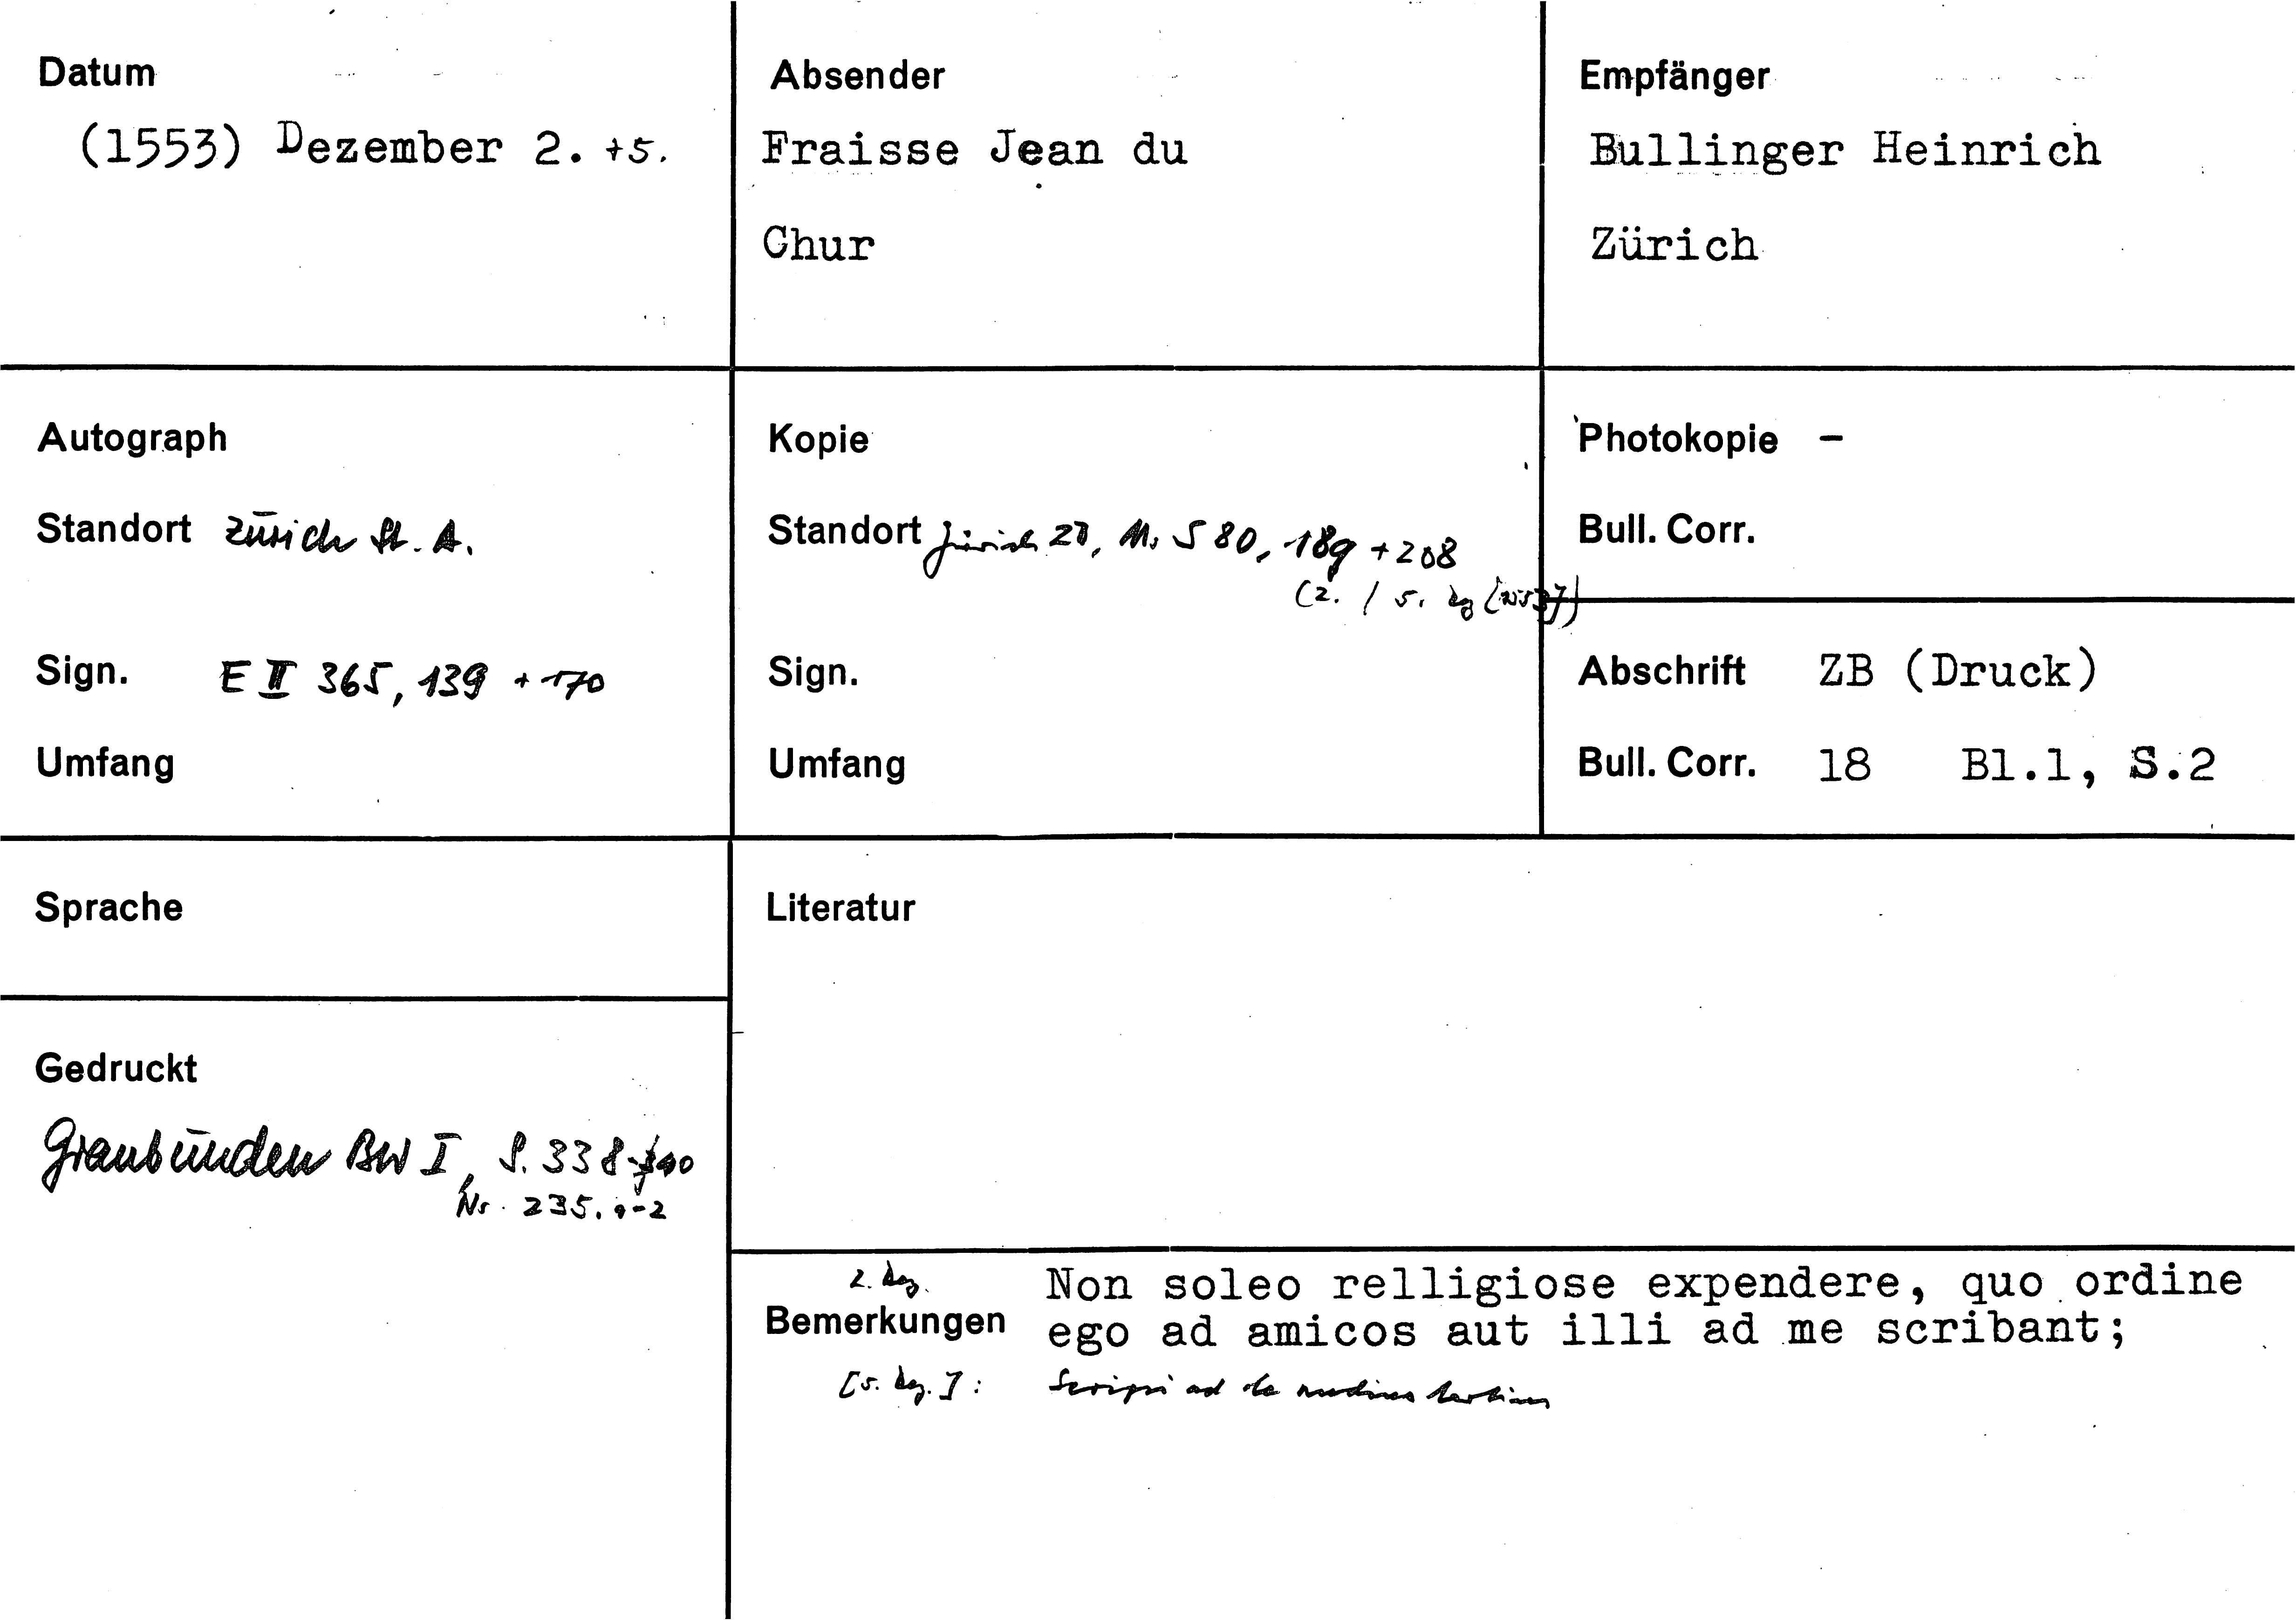 Datum
(1553) Dezember 2. +5.
Absender
Fraisse Jean du
Chur
Empfänger
Bullinger Heinrich
Zürich
Autograph
Standort Zürich St. A.
Sign. E II 365, 139 + 170
Umfang
Kopie
Standort Zürich ZB, Ms S 80, 189 + 208
(2. / 5. Dez (1553))
Sign.
Umfang
Photokopie –
Bull. Corr.
Abschrift ZB (Druck)
Bull. Corr. 18 Bl.1, S.2
Sprache
Gedruckt
Graubünden BW I, S. 338-340
Nr. 235. 1-2
Literatur
2. Dez.
Bemerkungen Non soleo relligiose expendere, quo ordine
ego ad amicos aut illi ad me scribant;
[5. Dez.]: Scripsi ad te nudius tertius